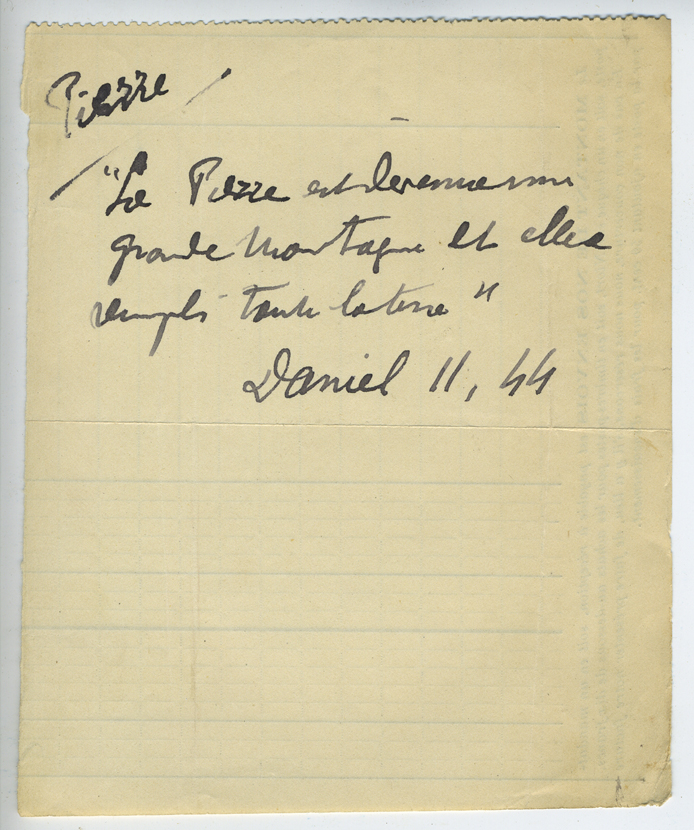 Pierre
"La Pierre est devenue une
grande Montagne et elle a
rempli toute la terre"
Daniel 11, 44